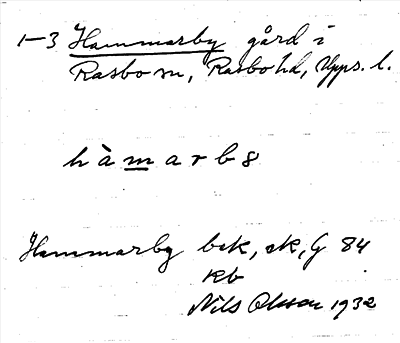 1-3 Hammarby gård i
Rasbo sn, Rasbo hd, Upps. l.
hàmarbȣ
Hammarby bsk, sk, G 84
Kb
Nils Olsson 1932